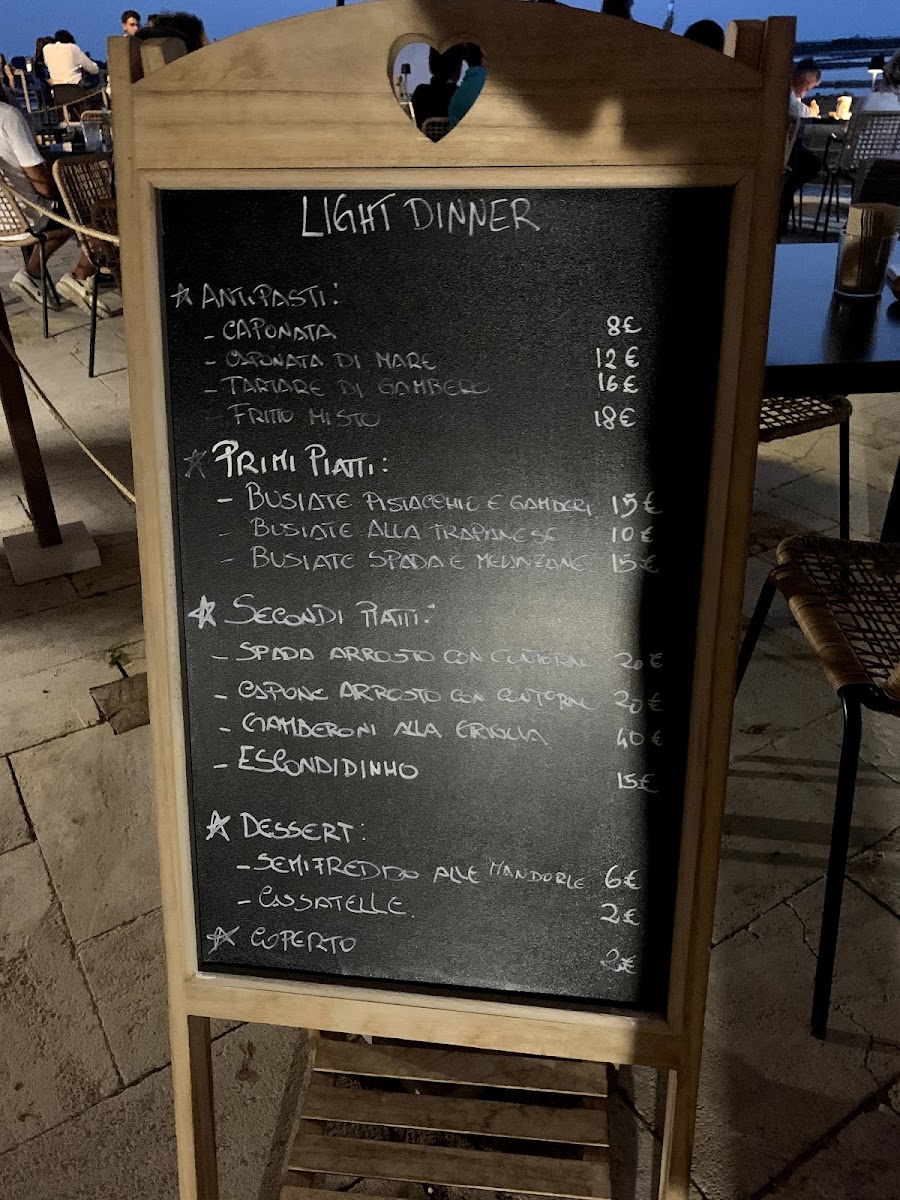 LIGHT DINNER
☆ ANTIPASTI:
- CAPONATA 8€
- CAPONATA DI MARE 12€
- TARTARE DI GAMBERO 16€
- FRITTO MISTO 18€
☆ PRIMI PIATTI:
- BUSIATE PISTACCHIO E GAMBERI 15€
- BUSIATE ALLA TRAPANESE 10€
- BUSIATE SPADA E MELANZANE 15€
☆ SECONDI PIATTI:
- SPADA ARROSTO CON CONTORNO 20€
- CAPONE ARROSTO CON CONTORNO 20€
- GAMBERONI ALLA GRIGLIA 40€
- ESCONDIDINHO 15€
☆ DESSERT:
- SEMIFREDDO ALLE MANDORLE 6€
- CASSATELLE 2€
☆ COPERTO 2€